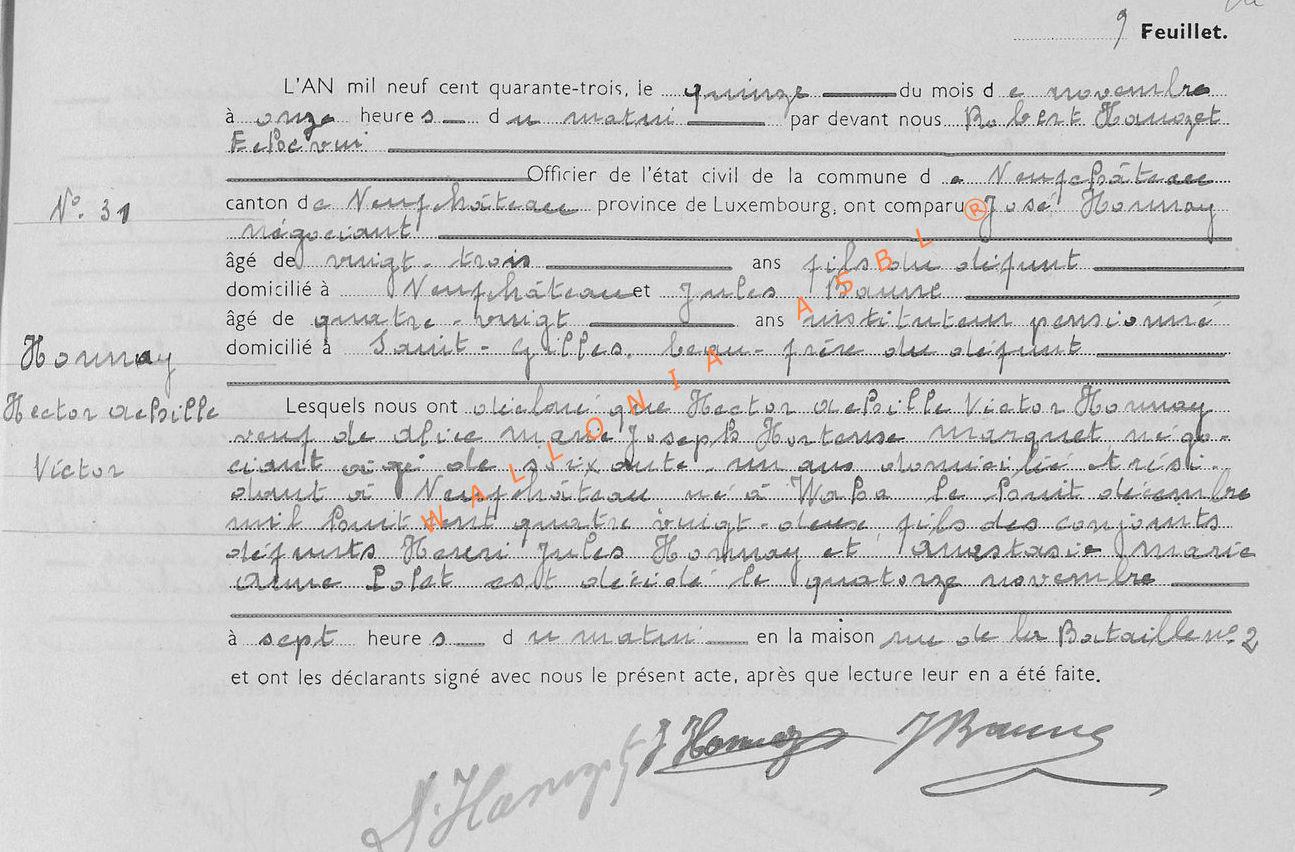 9 Feuillet.
L'AN mil neuf cent quarante-trois, le quinze du mois de novembre
à onze heures du matin par devant nous Robert Hanozet
Echevin
Officier de l'état civil de la commune de Neufchâteau
N°. 31
canton de Neufchâteau province de Luxembourg, ont comparu José Honnay
négociant
âgé de vingt-trois ans fils du défunt
domicilié à Neufchâteau et Jules Baune
âgé de quatre-vingt ans instituteur pensionné
domicilié à Saint-Gilles, beau-frère du défunt
Honnay
Hector achille
Victor
Lesquels nous ont déclaré que Hector achille Victor Honnay
veuf de alice marie Joseph Hortense marquet négo-
ciant agé de soixante-un ans domicilié et rési-
dant à Neufchâteau né à Waha le huit décembre
mil huit cent quatre vingt-deux fils des conjoints
défunts Henri Jules Honnay et Anastasie marie
Polet est décédé le quatorze novembre
à sept heures du matin en la maison rue de la Bataille n° 2
et ont les déclarants signé avec nous le présent acte, après que lecture leur en a été faite.
J Honnay JBaune
Hanozet
WALLONIA ASBL ®